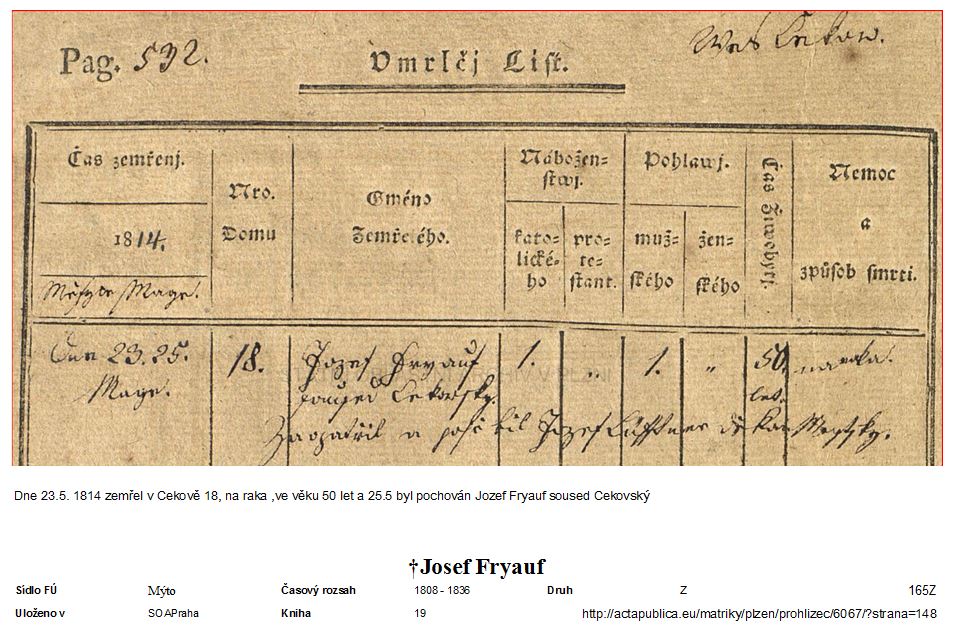 Pag. 532.
Wes Cekow.
Vmrlčj List.
Čas zemřenj.
1814.
Měsyce Mage.
Nro. Domu
Gméno Zemřelého.
Nábožen=
stwj.
kato=
lické=
ho
pro=
te=
stant.
Pohlawj.
muž=
ského
žen=
ského
Čas Žiwobytj.
Nemoc
a
způsob smrti.
Dne 23. 25.
Mage.
18.
Jozef Fryauf
soused Cekowsky.
1.
„
1.
„
50
let.
na raka.
Zaopatřil a pochowal Jozef Lüftner děkan Meytsky.
Dne 23.5. 1814 zemřel v Cekově 18, na raka ,ve věku 50 let a 25.5 byl pochován Jozef Fryauf soused Cekovský
†Josef Fryauf
Sídlo FÚ Mýto Časový rozsah 1808 - 1836 Druh Z 165Z
Uloženo v SOAPraha Kniha 19 http://actapublica.eu/matriky/plzen/prohlizec/6067/?strana=148